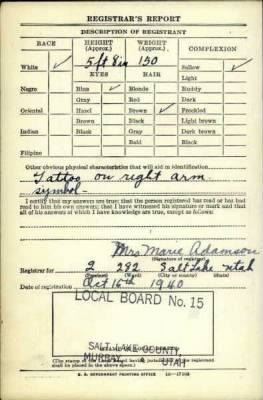 REGISTRAR'S REPORT
DESCRIPTION OF REGISTRANT
RACE HEIGHT (Approx.) WEIGHT (Approx.) COMPLEXION
White ✓ 5 ft 8 in 150 Sallow ✓
EYES HAIR Light
Negro Blue ✓ Blonde Ruddy
Gray Red Dark
Oriental Hazel Brown ✓ Freckled
Brown Black Light brown
Indian Black Gray Dark brown
Bald Black
Filipino
Other obvious physical characteristics that will aid in identification
Tattoo on right arm
symbol -
I certify that my answers are true; that the person registered has read or has had
read to him his own answers; that I have witnessed his signature or mark and that
all of his answers of which I have knowledge are true, except as follows:
Mrs Marie Adamson
(Signature of registrar)
Registrar for 2 282 Salt Lake Utah
(Precinct) (Ward) (City or county) (State)
Date of registration Oct 16th 1940
LOCAL BOARD No. 15
SALT LAKE COUNTY,
MURRAY, UTAH
(The stamp of the Local Board having jurisdiction of the registrant
shall be placed in the above space)
U. S. GOVERNMENT PRINTING OFFICE